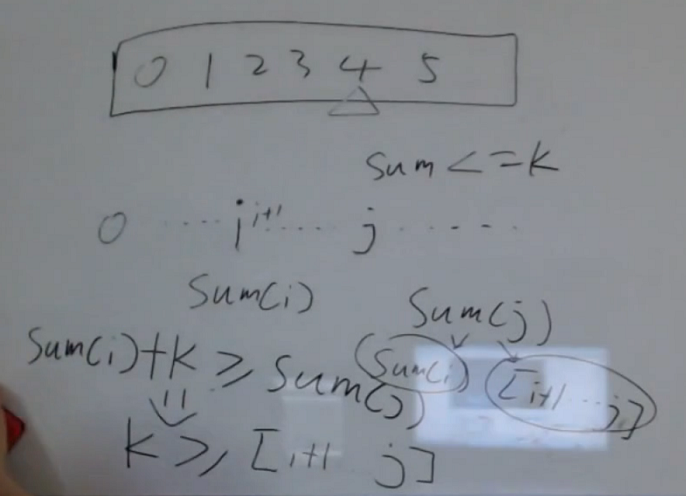 0 1 2 3 4 5
sum <= k
0 ..... i i+1 ... j ......
Sum(i) Sum(j)
Sum(i)+k ≥ Sum(j) (Sum(i)) [i+1 ... j]
k ≥ [i+1 j]